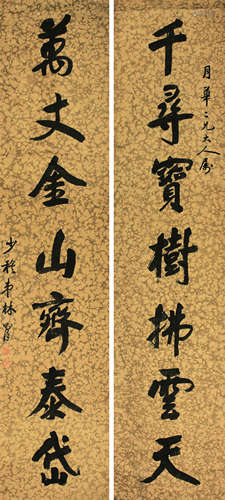 千尋寶樹拂雲天
月華二兄大人屬
萬丈金山齊泰岱
少穆弟林